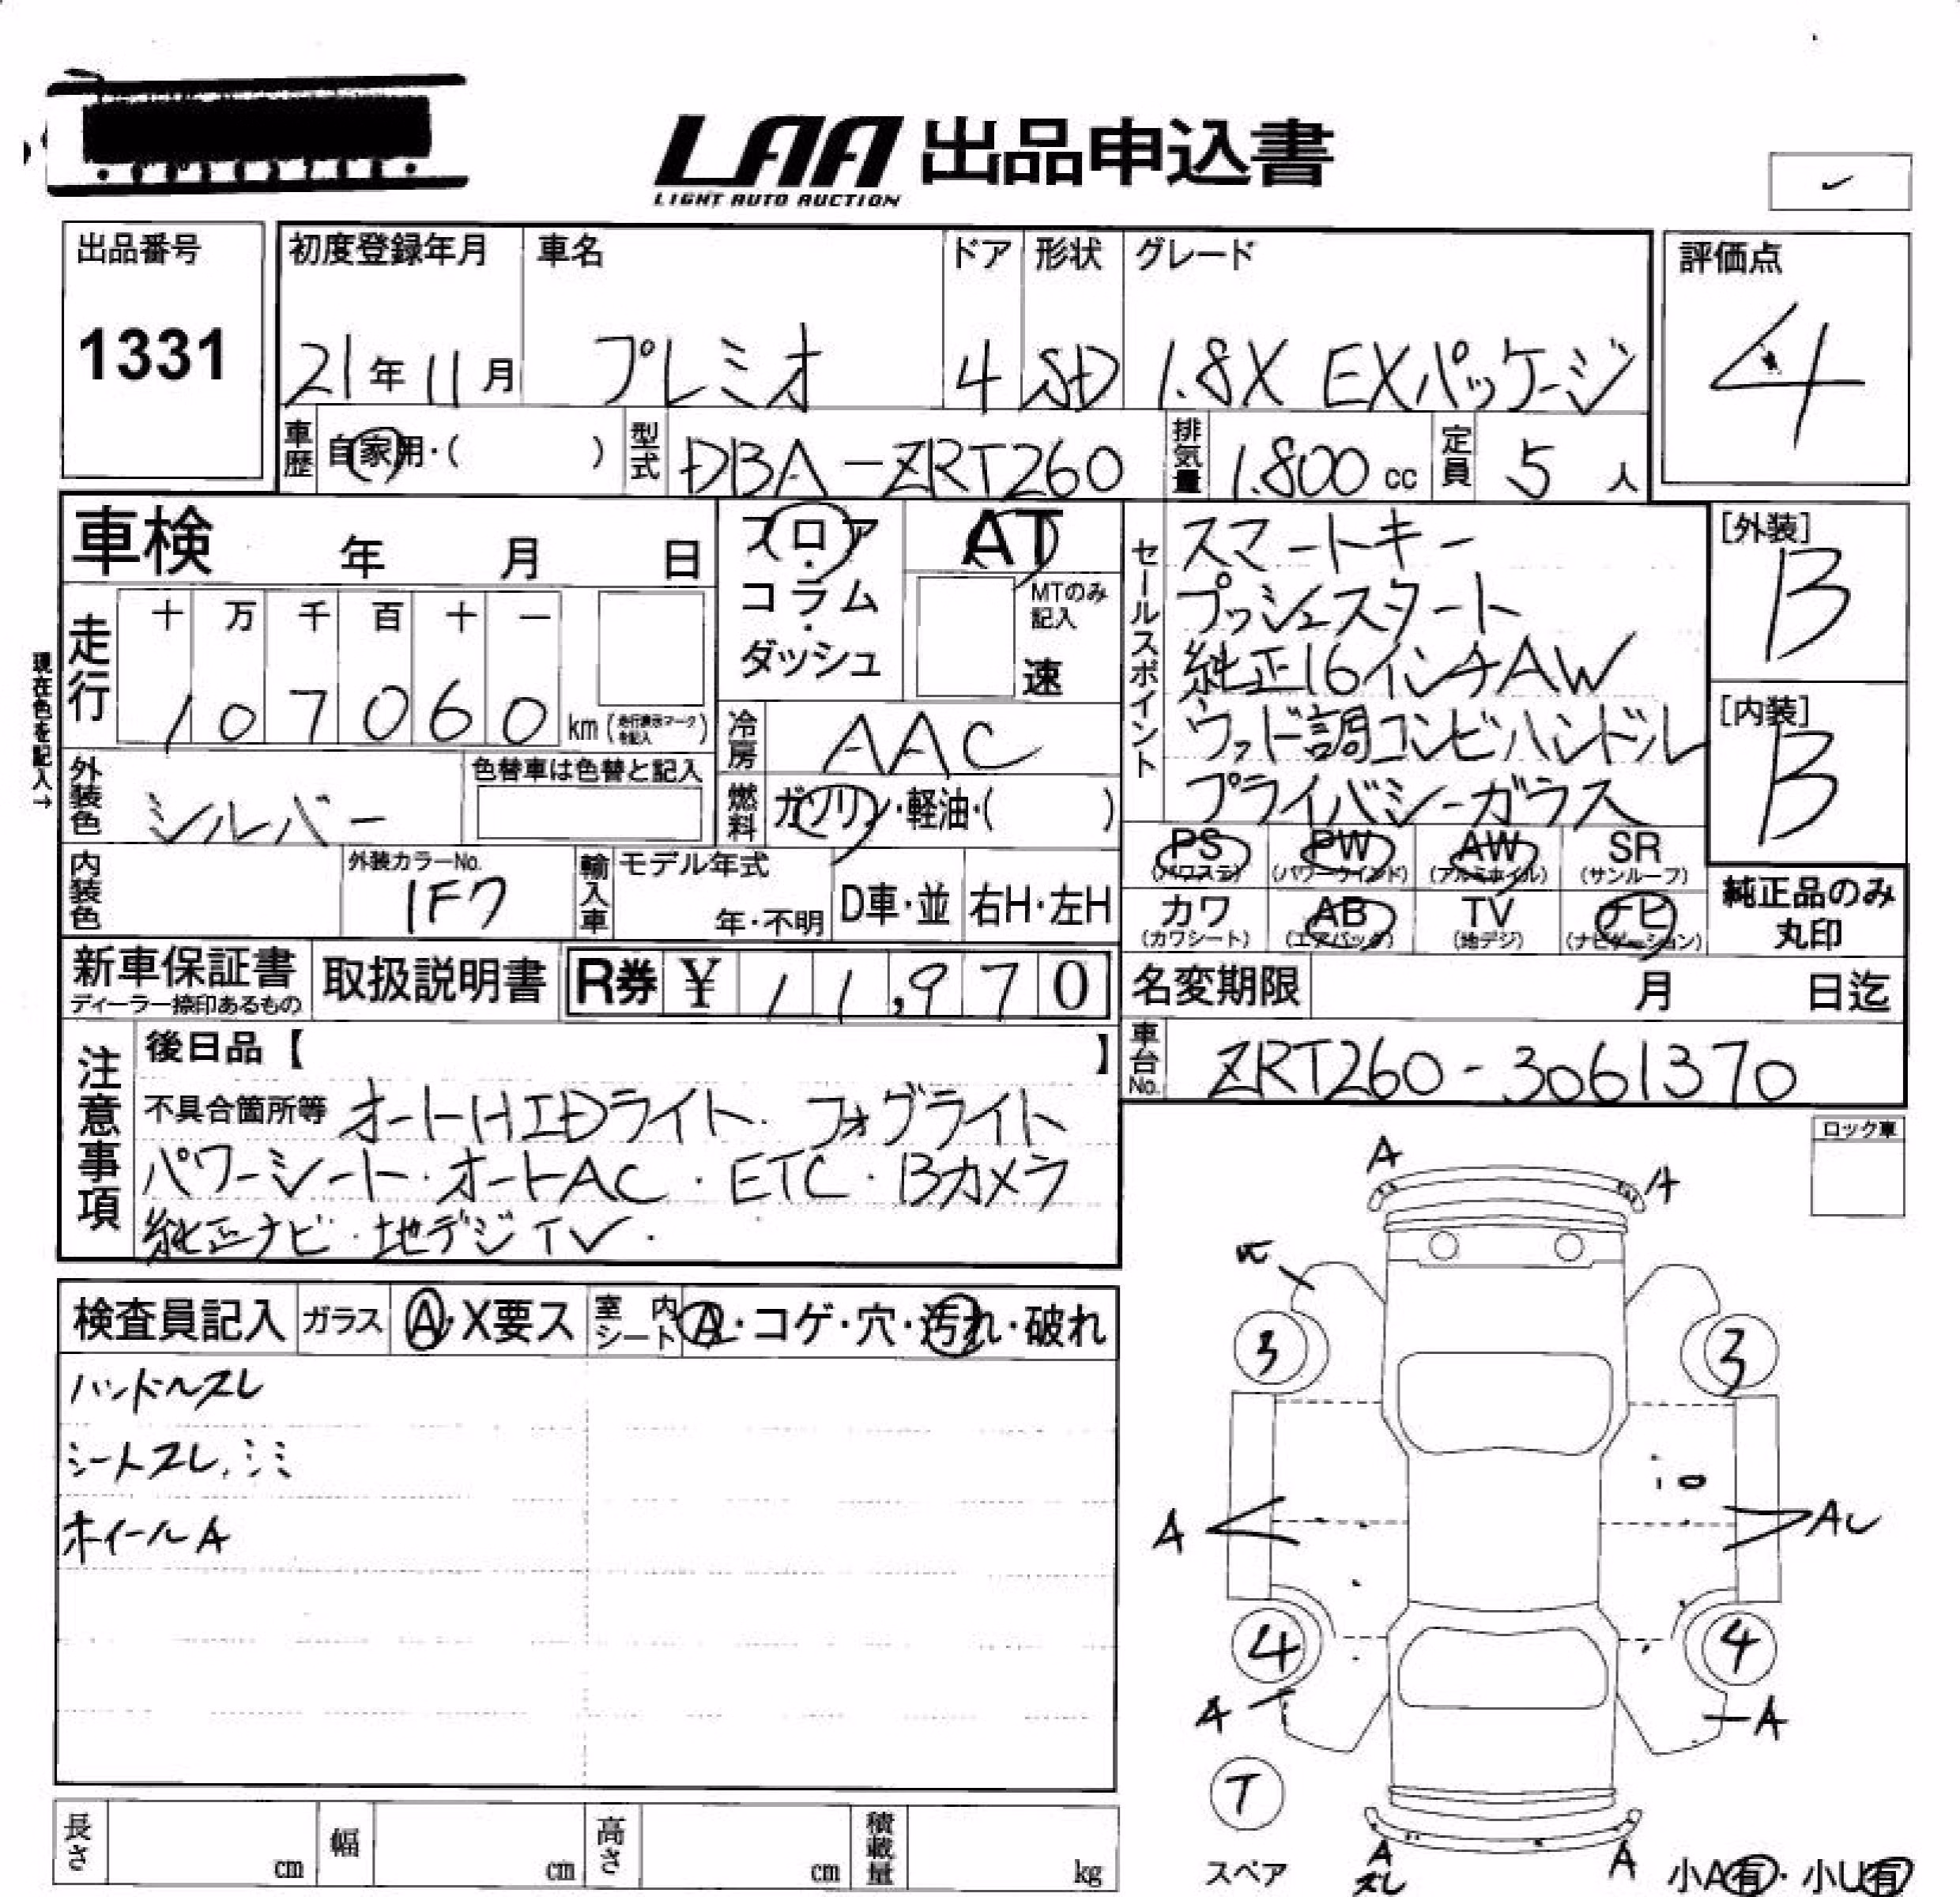 LAA 出品申込書
LIGHT AUTO AUCTION
出品番号
1331
初度登録年月
21年11月
車名
プレミオ
ドア
4
形状
SD
グレード
1.8X EXパッケージ
評価点
4
車歴 自家用・( )
型式 DBA-ZRT260
排気量 1.800 cc
定員 5 人
車検 年 月 日
フロア
コラム
ダッシュ
AT
MTのみ記入
速
セールスポイント
スマートキー
プッシュスタート
純正16インチAW
ウッド調コンビハンドル
プライバシーガラス
[外装]
B
[内装]
B
現在色を記入→
走行
十 万 千 百 十 一
1 0 7 0 6 0 km (走行表示マークを記入)
冷房 AAC
外装色 シルバー
色替車は色替と記入
燃料 ガソリン・軽油・( )
内装色
外装カラーNo.
1F7
輸入車
モデル年式
年・不明
D車・並
右H・左H
PS (パワステ)
PW (パワーウインド)
AW (アルミホイル)
SR (サンルーフ)
カワ (カワシート)
AB (エアバッグ)
TV (地デジ)
ナビ (ナビゲーション)
純正品のみ
丸印
新車保証書
ディーラー捺印あるもの
取扱説明書
R券 ¥ 11,970
名変期限 月 日迄
車台No. ZRT260-3061370
注意事項
後日品【 】
不具合箇所等 オートHIDライト・フォグライト
パワーシート・オートAC・ETC・Bカメラ
純正ナビ・地デジTV・
ロック車
検査員記入
ガラス A・X要ス
室内シート A・コゲ・穴・汚れ・破れ
ハンドルスレ
シートスレ、シミ
ホイールA
A
A
3
3
A
A
4
4
A
A
T
スペア
A
スレ
A
小A有・小U有
長さ cm
幅 cm
高さ cm
積載量 kg